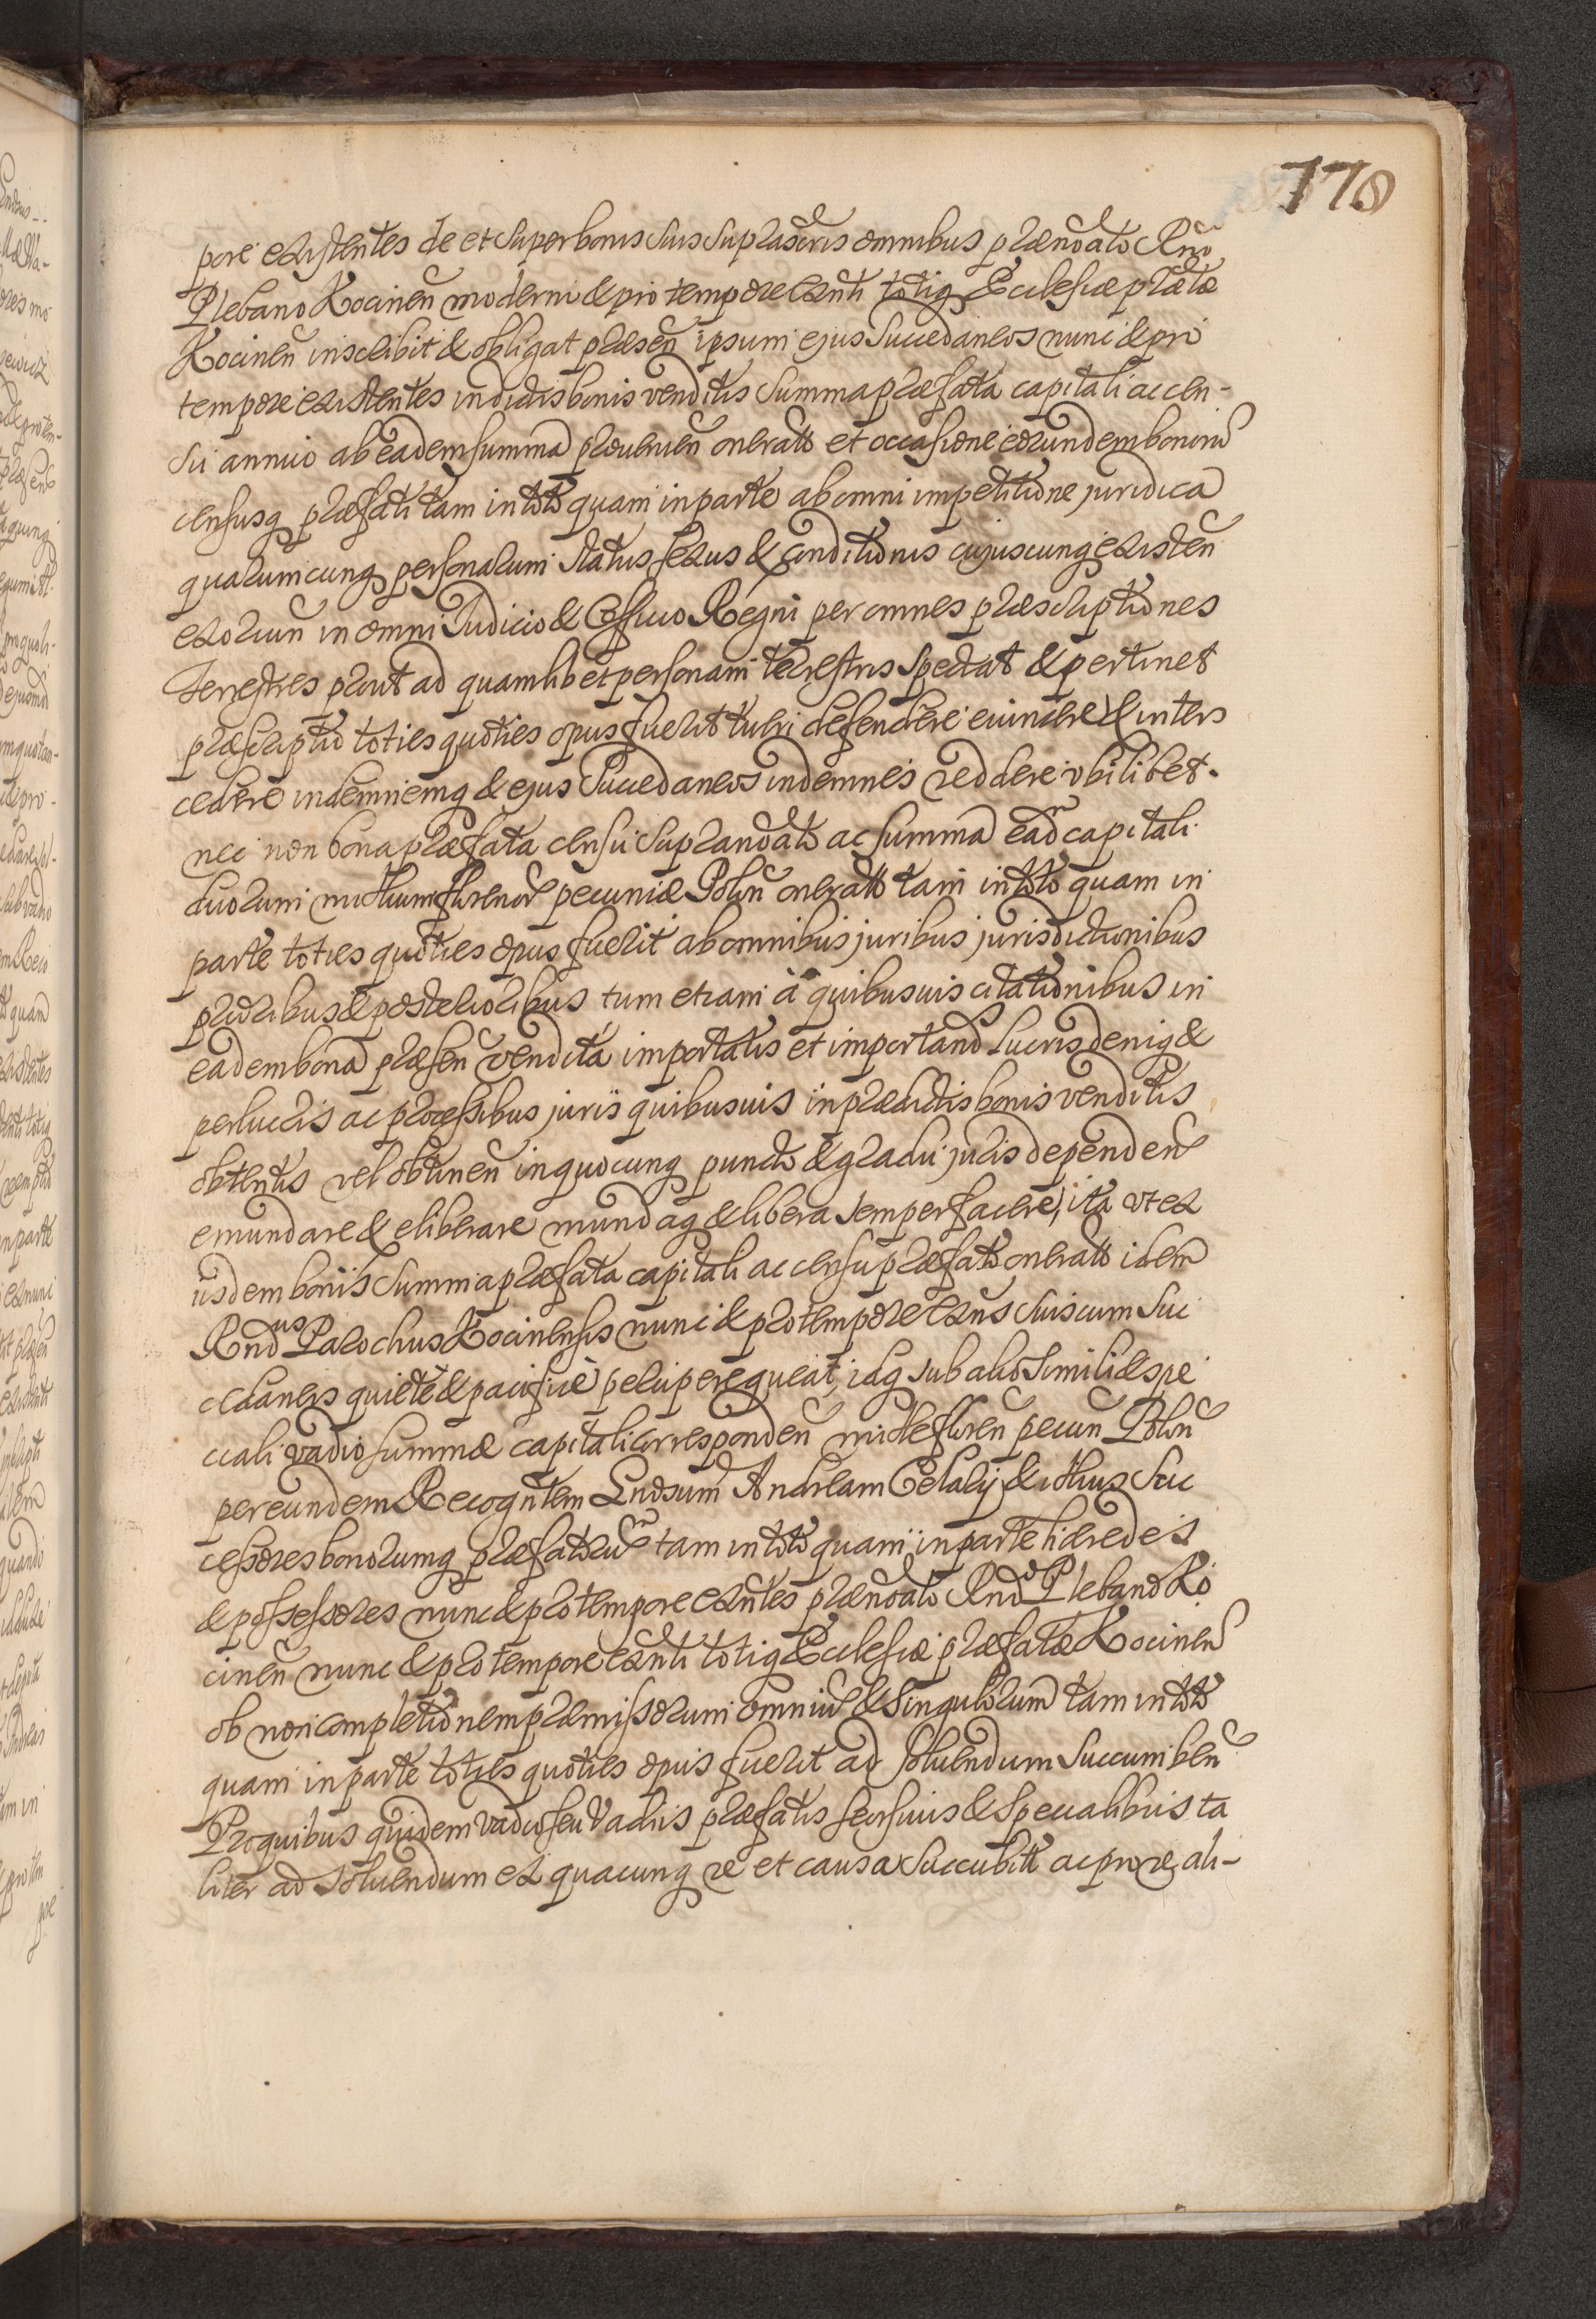 778
pore existentes de et super bonis suis suprascris omnibus prænoato Rndo
Plebano Kocinen moderni & pro tempore exnti totiq Ecclesiæ præfatæ
Kocinen inscribit & obligat præsen ipsum ejus Succedaneos nunc & pro
tempore existentes in dictis bonis venditis Summa præfata capitali ac cen-
su annuo ab eadem summa provenien oneratt et occasione eorundem bonorum
censusq præfati tam in toto quam in parte ab omni impetitione juridica
quarumcunq personarum Status sexus & conditionis cujuscunq existen
exorum in omni Iudicio & Officio Regni per omnes præscriptiones
terrestres prout ad quamlibet personam terrestris Spectat & pertinet
præscriptio toties quoties opus fuerit tueri defendere evincere & inters
cedere indemnemq & ejus Succedaneos indemnes reddere vbilibet.
nec non bona præfata censu supranoato ac summa eadem capitali
duorum millium florenor pecuniæ Polon oneratt tam in toto quam in
parte toties quoties opus fuerit ab omnibus juribus jurisdictionibus
prioribus & posterioribus tum etiam à quibusuis citationibus in
eadem bona præsen vendita importatis et importand Lucris deniq &
perlucris ac processibus juris quibusuis in prædictis bonis venditis
obtentis vel obtinen in quocunq puncto & gradu juris dependen
emundare & eliberare mundaq & libera semper facere, ita vt ex
iisdem bonis Summa præfata capitali ac censu præfato oneratt idem
Rndus Parochus Kocinensis nunc & pro tempore exns suis cum Suc
cedaneis quiete & pacifice percipere queat, idq sub alio Simili & spe
ciali vadio summæ capitali corresponden mille floren pecun Polon
per eundem Recognitem Gnosum Andream Cekaly & illius Suc
cessores bonorumq præfatorum tam in toto quam in parte hæredes
& possessores nunc & pro tempore exntes prænoato Rndo Plebano Ko
cinen nunc & pro tempore exnti totiq Ecclesiæ præfatæ Kocinen
ob non completionem præmissorum omnium & Singulorum tam in toto
quam in parte toties quoties opus fuerit ad soluendum Succumben
Pro quibus quidem vadio seu Vadiis præfatis seorsivis & Specialibus ta
liter ad soluendum ex quacunq re et causa Succubitt ac pro re ali-